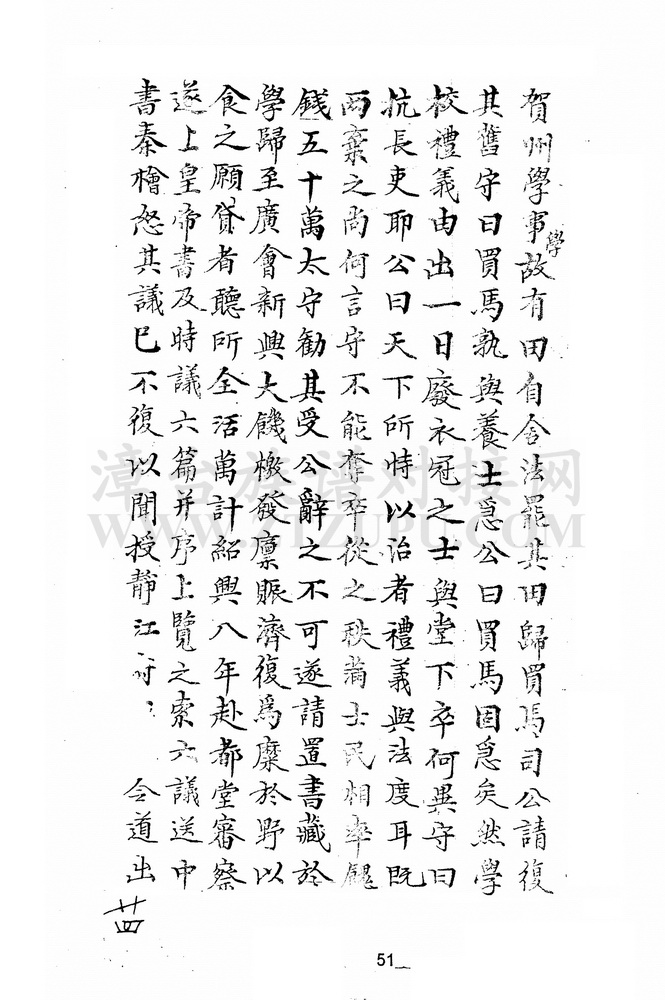 賀州學事學故有田自舍法罷其田歸買馬司公請復
其舊守曰買馬孰與養士急公曰買馬固急矣然學
校禮義由出一日廢衣冠之士與堂下卒何異守曰
抗長吏耶公曰天下所恃以治者禮義與法度耳既
兩棄之尚何言守不能奪卒從之秩滿士民相率餽
錢五十萬太守勸其受公辭之不可遂請置書藏於
學歸至廣會新興大饑檄發廩賑濟復為糜於野以
食之願貸者聽所全活萬計紹興八年赴都堂審察
遂上皇帝書及時議六篇并序上覽之索六議送中
書秦檜怒其議已不復以聞授靜江府 令道出
廿四
51
漳台族谱对接网
WWW.ZTZUPU.COM